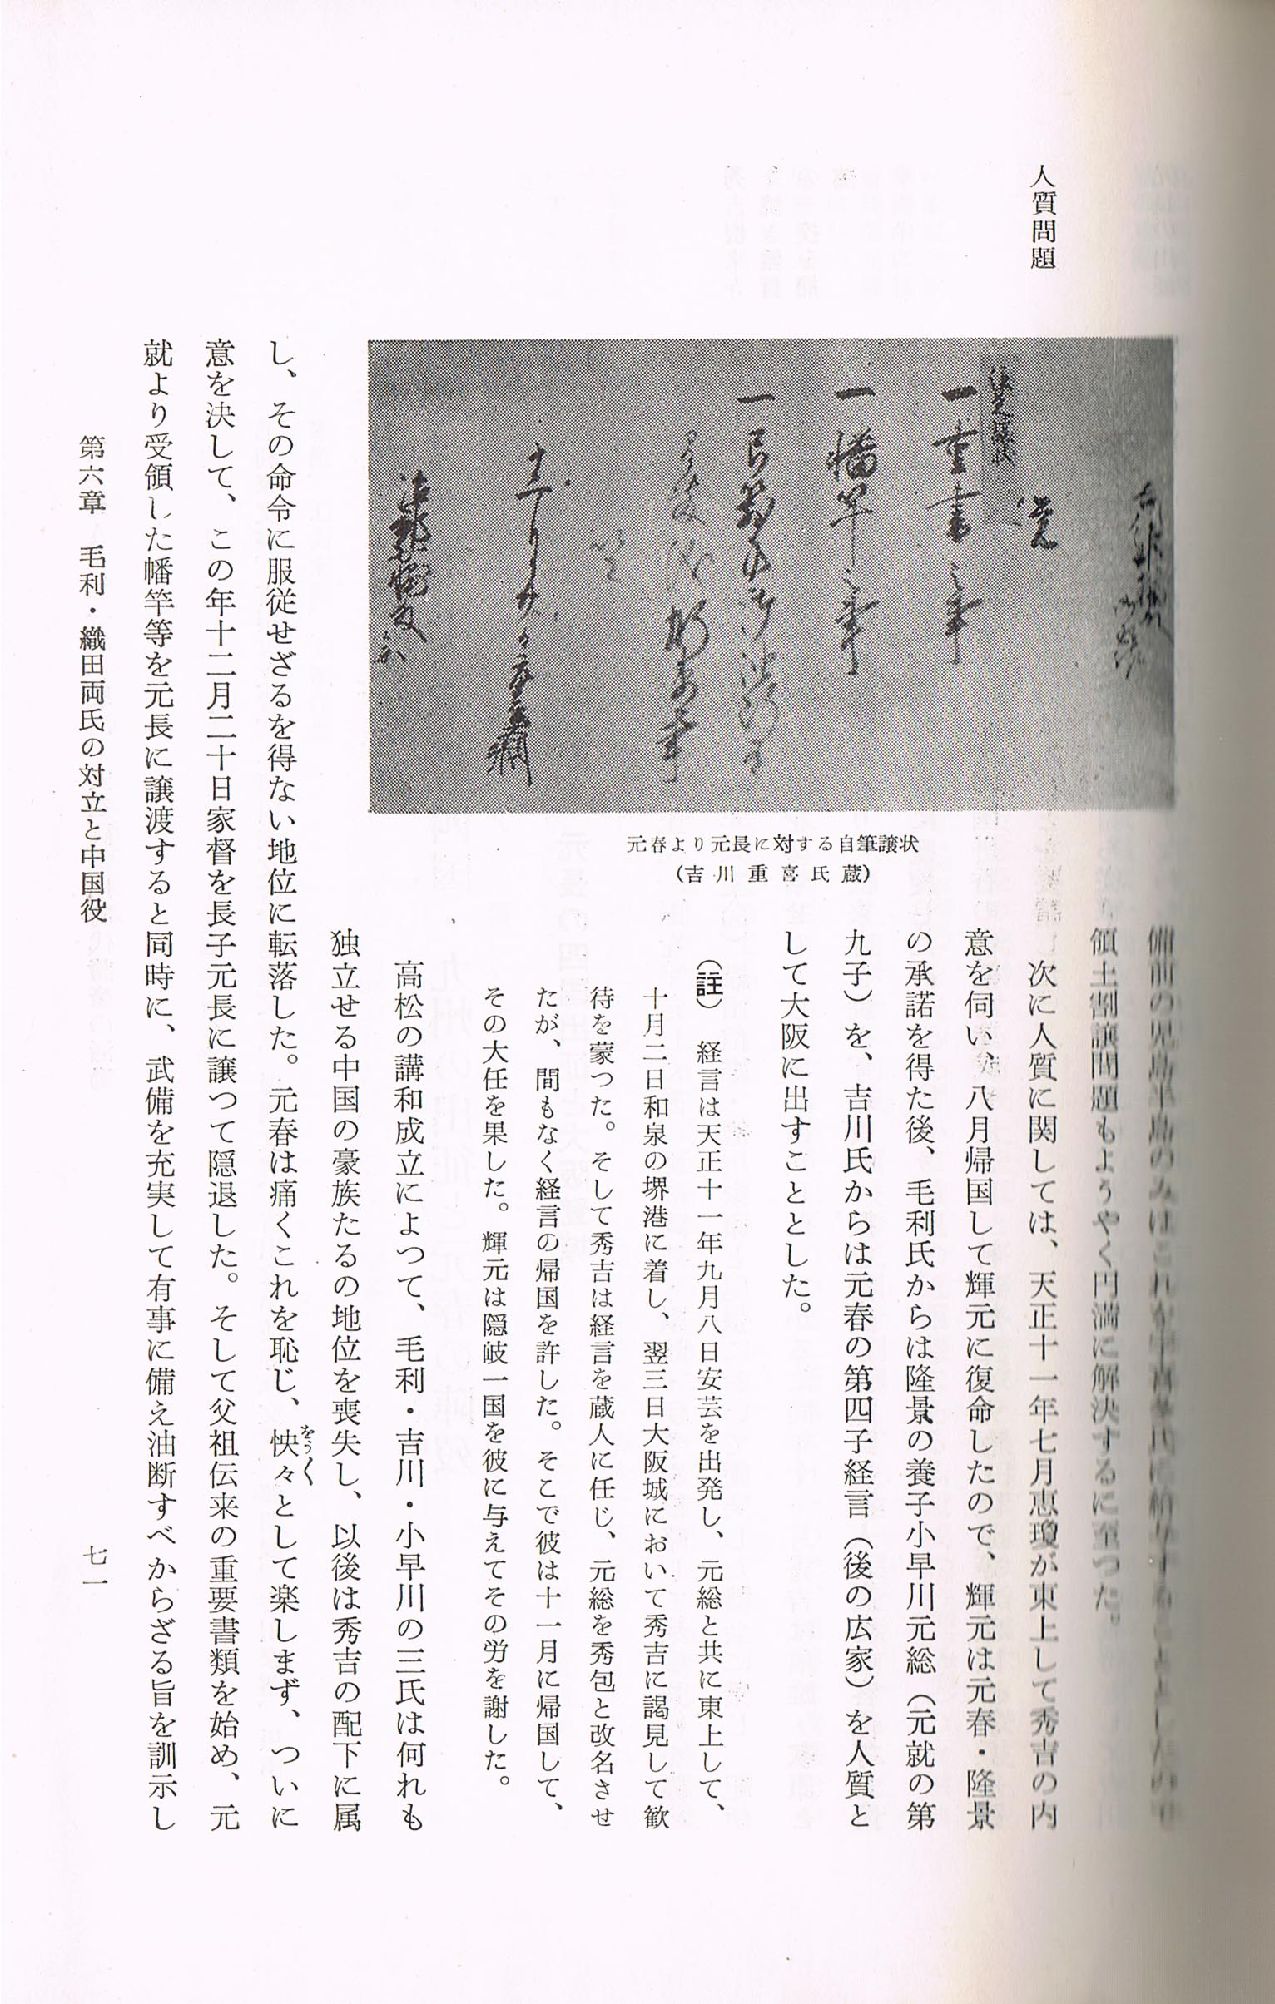 人質問題
備前の児島半島のみはこれを宇喜多氏に給与することとしたので
領土割譲問題もようやく円満に解決するに至つた。
次に人質に関しては、天正十一年七月恵瓊が東上して秀吉の内
意を伺い、八月帰国して輝元に復命したので、輝元は元春・隆景
の承諾を得た後、毛利氏からは隆景の養子小早川元総（元就の第
九子）を、吉川氏からは元春の第四子経言（後の広家）を人質と
して大阪に出すこととした。
（註）　経言は天正十一年九月八日安芸を出発し、元総と共に東上して、
十月二日和泉の堺港に着し、翌三日大阪城において秀吉に謁見して歓
待を蒙つた。そして秀吉は経言を蔵人に任じ、元総を秀包と改名させ
たが、間もなく経言の帰国を許した。そこで彼は十一月に帰国して、
その大任を果した。輝元は隠岐一国を彼に与えてその労を謝した。
元春より元長に対する自筆譲状
（吉川重喜氏蔵）
覚
一重書之事
一幡竿之事
高松の講和成立によつて、毛利・吉川・小早川の三氏は何れも
独立せる中国の豪族たるの地位を喪失し、以後は秀吉の配下に属
し、その命令に服従せざるを得ない地位に転落した。元春は痛くこれを恥じ、怏々として楽しまず、ついに
をうく
意を決して、この年十二月二十日家督を長子元長に譲つて隠退した。そして父祖伝来の重要書類を始め、元
就より受領した幡竿等を元長に譲渡すると同時に、武備を充実して有事に備え油断すべからざる旨を訓示し
第六章　毛利・織田両氏の対立と中国役
七一